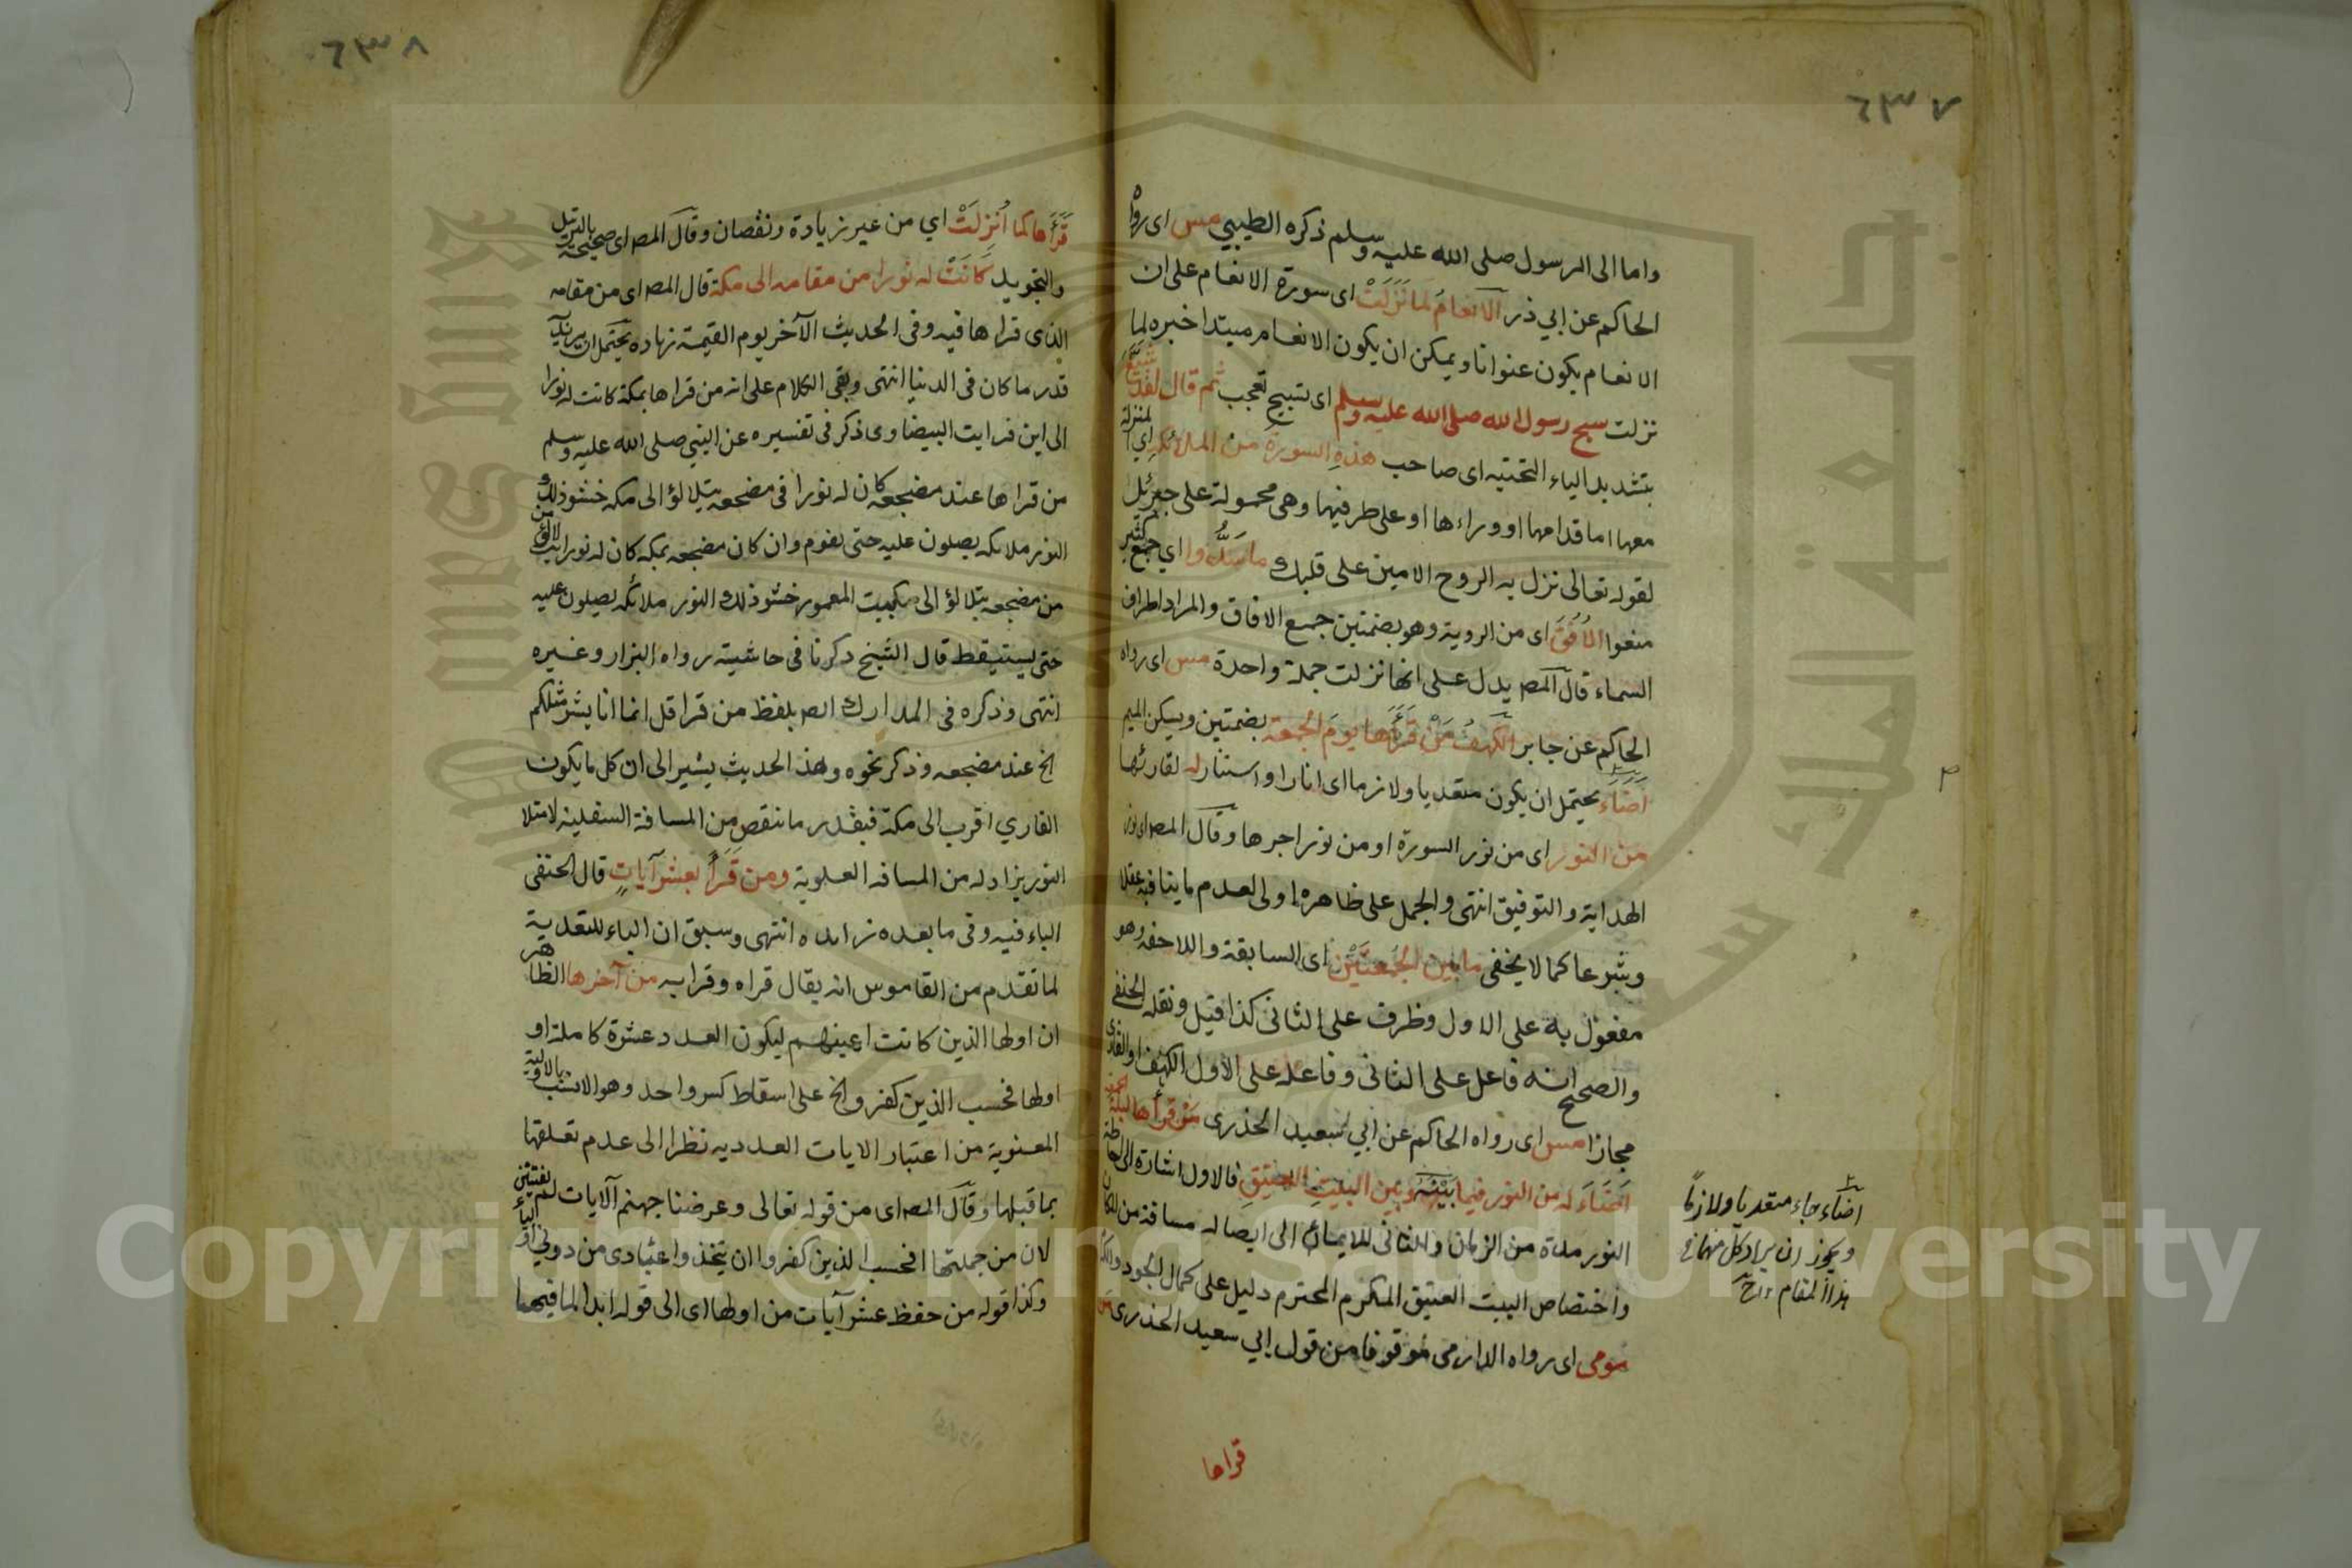 ٦٣٧
واما الى الرسول صلى الله عليه وسلم ذكره الطيبي مس اى رواه
الحاكم عن ابي ذر الانعام لما نزلت اى سورة الانعام على ان
الانعام يكون عنوانا ويمكن ان يكون الانعام مبتدا خبره لما
نزلت سبح رسول الله صلى الله عليه وسلم اى تسبيح تعجب ثم قال لقد شيع
بتشديد الياء التحتيه اى صاحب هذه السورة من الملائكة اي المنزلة
معها اما قدامها او وراءها او على طرفيها وهى محمولة على جبرئيل
لقوله تعالى نزل به الروح الامين على قلبك ما سدوا اي جمع كثير
منعوا الافق اى من الروية وهو بضمتين جمع الافاق والمراد اطراف
السماء قال المص يدل على انها نزلت جملة واحدة مس اى رواه
الحاكم عن جابر الكهف من قرأها يوم الجمعة بضمتين ويسكن الميم
اضاء يحتمل ان يكون متعديا ولازما اى انارا واستنار له لقارئها
من النور اى من نور السورة او من نور اجرها وقال المص اى نور
الهداية والتوفيق انتهى والحمل على ظاهره اولى لعدم ما ينافيه عقلا
وشرعا كما لا يخفى ما بين الجمعتين اى السابقة واللاحقه وهو
مفعول به على الاول وظرف على الثانى كذا قيل ونقله الحنفى
والصحيح انه فاعل على الثانى وفاعله على الاول الكهف او القارى
مجازا مس اى رواه الحاكم عن ابي سعيد الخذرى من قرأها ليلة الجمعة
اضاء له من النور فيما بينه وبين البيت العتيق فالاول اشارة الى احاطة
النور مدة من الزمان والثانى للايماء الى ايصاله مسافة من المكان
واختصاص البيت العتيق المكرم المحترم دليل على كمال الجود والكرم
مومى اى رواه الدارمى موقوفا من قول ابي سعيد الخذرى من
قراها
اضاء جاء متعديا ولازما
ويجوز ان يراد كل منهما فى
هذا المقام
٦٣٨
قرأها كما انزلت اي من غير زيادة ونقصان وقال المص اى صحيحه بالترتيل
والتجويد كانت له نورا من مقامه الى مكة قال المص اى من مقامه
الذى قراها فيه وفى الحديث الآخر يوم القيمة زياده يحتمل ان يريد
قدر ما كان فى الدنيا انتهى وبقى الكلام على انه من قراها بمكة كانت له نورا
الى اين فرايت البيضاوى ذكر فى تفسيره عن النبي صلى الله عليه وسلم
من قراها عند مضجعه كان له نورا فى مضجعه يتلالؤ الى مكه حشو ذلك
النور ملائكه يصلون عليه حتى يقوم وان كان مضجعه بمكه كان له نورا يتلالؤ
من مضجعه يتلالؤ الى البيت المعمور حشو ذلك النور ملائكه يصلون عليه
حتى يستيقظ قال الشيخ ذكرنا فى حاشيته رواه البزار وغيره
انتهى وذكره فى المدارك الم بلفظ من قرا قل انما انا بشر مثلكم
الخ عند مضجعه وذكر نحوه وهذ الحديث يشير الى ان كل ما يكون
القاري اقرب الى مكة فبقدر ما نقص من المسافة السفلية لامتلا
النور يزاد له من المسافه العلوية ومن قرأ بعشر آيات قال الحنفى
الباء فيه وفى ما بعده زائده انتهى وسبق ان الباء للتعدية
لما تقدم من القاموس انه يقال قراه وقرا به من آخرها الظاهر
ان اولها الذين كانت اعينهم ليكون العدد عشرة كاملة او
اولها افحسب الذين كفروا الخ على اسقاط كسر واحد وهو الانسب بالاولية
المعنوية من اعتبار الايات العدديه نظرا الى عدم تعلقها
بما قبلها وقال المص اى من قوله تعالى وعرضنا جهنم الآيات
لان من جملتها افحسب الذين كفروا ان يتخذوا عبادى من دوني اولياء
وكذا قوله من حفظ عشر آيات من اولها اى الى قوله ابدا لما فيهما
Copyright © King Saud University
جامعة الملك سعود
King Saud University